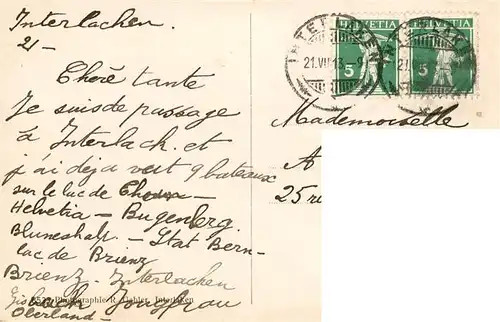 Interlachen.
21-
Cherè tante
Je suis de passage
à Interlach. et
j'ai deja vert 9 bateaux
sur le luc de Choun
Helvetia - Bugenberg.
Blumeshalp - Stat Bern-
lac de Brienz
Brienz - Interlachen
Gisbach Jongfrau
Oberland-
Photographie R. Gabler, Interlaken
HELVETIA
HELVETIA
5
5
INTERLAKEN
21.VII.13.-9
INTERLAKEN
21.
Mademoiselle
A
25 ru